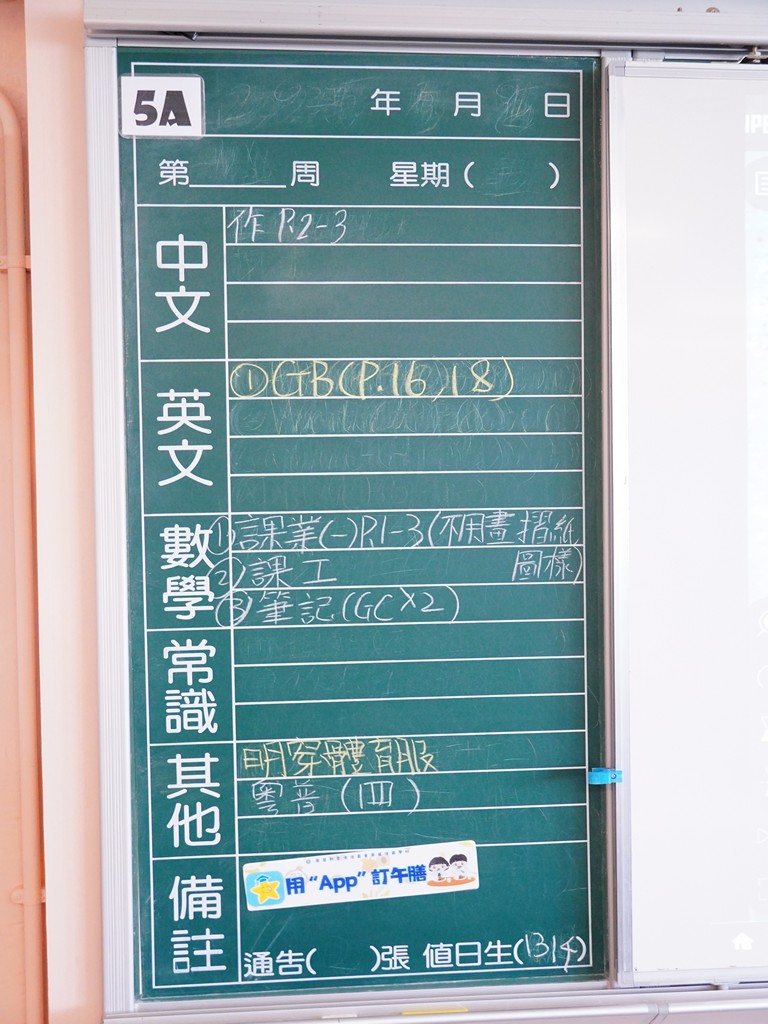 5A
年 月 日
第______周 星期( )
中文
作 P.2-3
英文
①GB(P.16,18)
數學
①課業(一)P.1-3(不用畫摺紙
圖樣)
②課工
③筆記(GC×2)
常識
其他
明穿體育服
粵普(四)
備註
用“App”訂午膳
通告( )張 值日生(13 14)